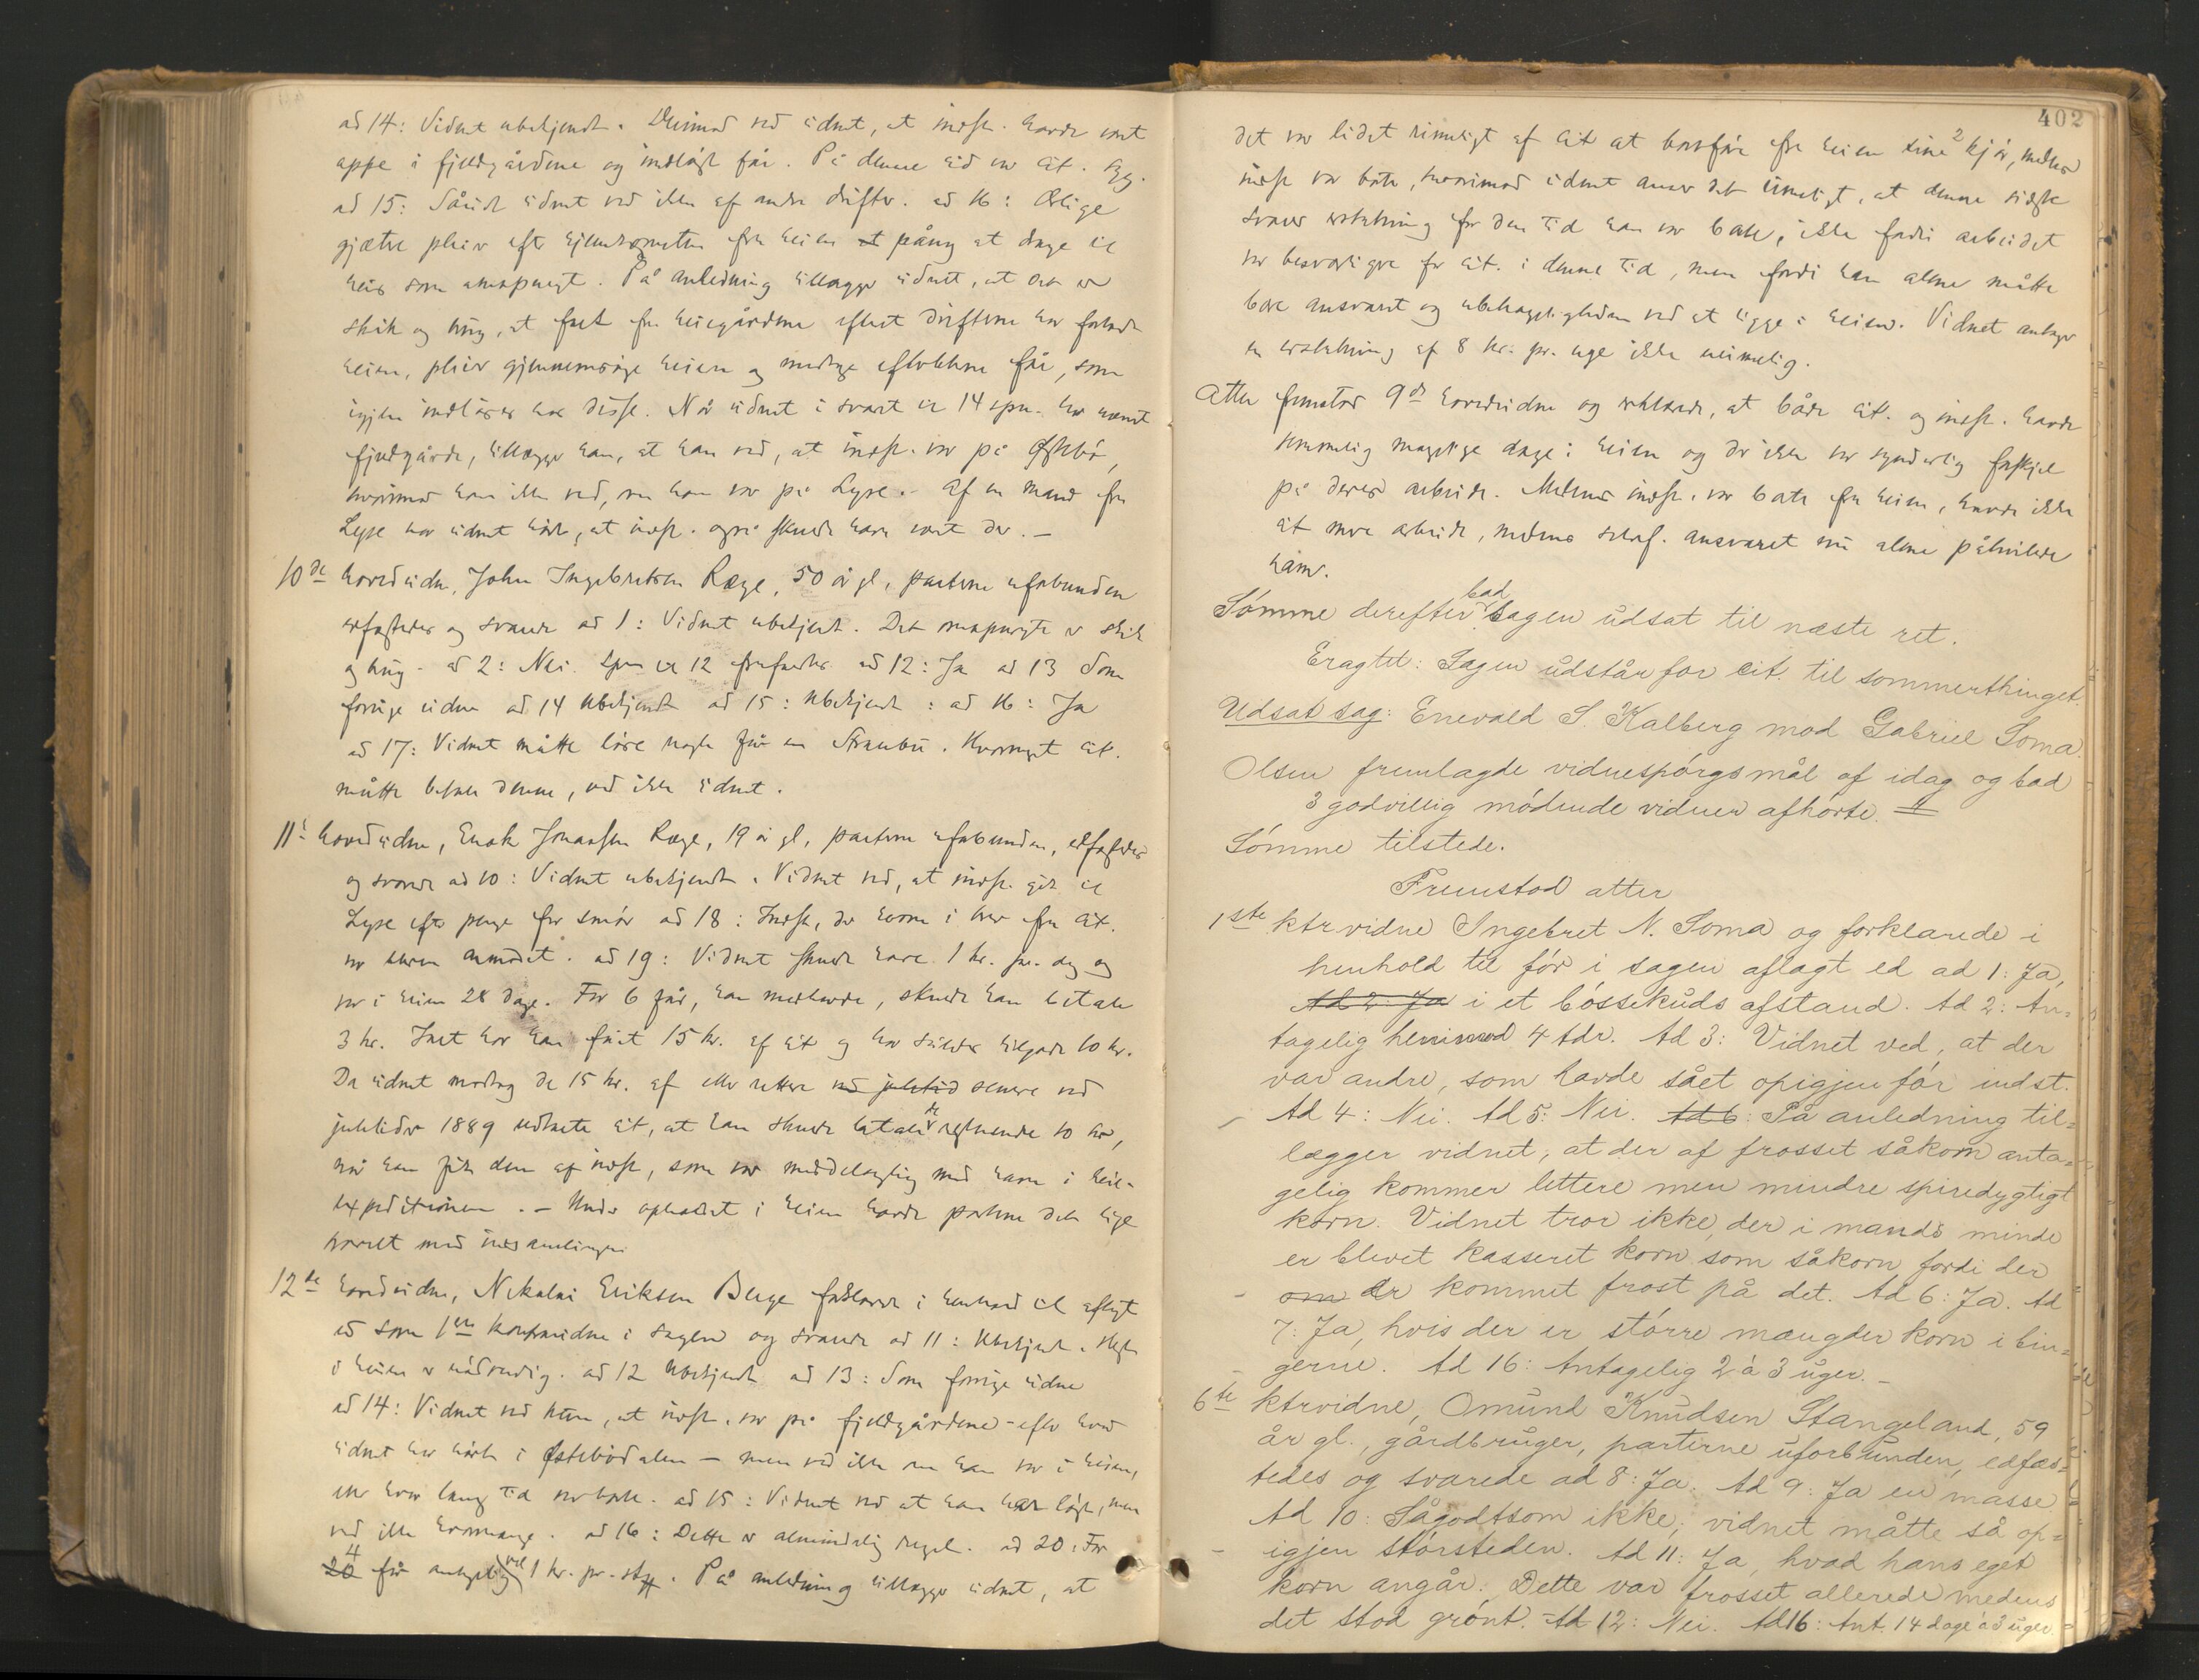 ad 14: Vidnet ubekjendt. Derimod ved vidnet, at indst. havde vært
oppe i fjeldgårdene og indløst får. På denne tid var cit. syg.
ad 15: Såvidt vidnet ved ikke af andre drifter. ad 16: Ærlige
gjætere pleier efter hjemkomsten fra heien at påny at drage til
heis som omspurgt. På anledning tillægger vidnet, at det er
skik og brug, at folk fra heiegårdene efterat drifterne har forladt
heien, pleier gjennemsøge heien og medtage efterladte får, som
igjen indløses hos disse. Når vidnet i svaret til 14 spm. har nævnt
fjeldgårde, tillægger han, at han ved, at indst. var på Østebø,
hvorimod han ikke ved, om han var på Lyse. Af en mand fra
Lyse har vidnet hørt, at indst. også skulde have vært der. –
10de hovedvidne, John Ingebretsen Ræge, 50 år gl., parterne uforbunden
edfæstedes og svarede ad 1: Vidnet ubekjendt. Det omspurgte er skik
og brug. ad 2: Nei. Spm. til 12 frafaldes. ad 12: Ja ad 13 Som
forrige vidne ad 14 Ubekjendt ad 15: Ubekjendt: ad 16: Ja
ad 17: Vidnet måtte løse nogle får om Strandbu. Hvormeget cit.
måtte betale denne, ved ikke vidnet.
11te hovedvidne, Enok Jonassen Ræge, 19 år gl., parterne uforbunden, edfæstedes
og svarede ad 10: Vidnet ubekjendt. Vidnet ved, at indst. gik til
Lyse efter penge for smør ad 18: Indst., der kom i brev fra cit.
var derom anmodet. ad 19: Vidnet skulde have 1 kr. pr. dag og
var i heien 28 dage. For 6 får, han medhavde, skulde han betale
3 kr. Ialt har han fået 15 kr. af cit og har således tilgode 10 kr.
Da vidnet modtog de 15 kr. af eller rettere ved juletid senere ved
juletider 1889 udtalte cit, at han skulde betale de resterende 10 kr,
når han fik dem af indst, som var meddelagtig med ham i heie-
expeditionen. – Under opholdet i heien havde parterne det lige
travelt med indsamlingen
12te hovedvidne, Nikolai Eriksen Berge forklarede i henhold til aflagt
ed som 1ste kontravidne i sagen og svarede ad 11: Ubekjendt. Hest
i heien er nødvendig. ad 12 Ubekjendt ad 13: Som forrige vidne
ad 14: Vidnet ved kun, at indst. var på fjeldgårdene – efter hvad
vidnet har hørt i Østebødalen – men ved ikke om han var i heien,
eller hvor lang tid var borte. ad 15: Vidnet ved at han har løst, men
ved ikke hvormange. ad 16: Dette er almindelig regel. ad 20: For
20 4 får antagelig ved 1 kr. pr. stk. På anledning tillægger vidnet, at
402
det var lidet rimeligt af cit at bortføre fra heien sine 2 kjør, medens
indst var borte, hvorimod vidnet anser det rimeligt, at denne sidste
svarer erstatning for den tid han var borte, ikke fordi arbeidet
var besværligere for cit. i denne tid, men fordi han alene måtte
bære ansvaret og ubehageligheden ved at ligge i heien. Vidnet antager
en erstatning af 8 kr. pr. uge ikke urimelig.
Atter fremstod 9de hovedvidne og erklærede, at både cit. og indst. havde
temmelig magelige dage i heien og der ikke var synderlig forskjel
på deres arbeide. Medens indst. var borte fra heien, havde ikke
cit mere arbeide, medens selvf. ansvaret nu alene påhvilede
ham.
Sømme derefter bad sagen udsat til næste ret.
Eragtet: Sagen udstår for cit. til sommerthinget.
Udsat sag: Enevald S. Kalberg mod Gabriel Soma.
Olsen fremlagde vidnespørgsmål af idag og bad
3 godvillig mødende vidner afhørte.
Sømme tilstede.
Fremstod atter
1ste ktrvidne Ingebret N. Soma og forklarede i
henhold til før i sagen aflagt ed ad 1: Ja,
Ad 2: Ja i et bøsseskuds afstand. Ad 2: An-
tagelig henimod 4 tdr. Ad 3: Vidnet ved, at der
var andre, som havde sået opigjen før indst.
Ad 4: Nei. Ad 5: Nei. Ad 6: På anledning til-
lægger vidnet, at der af frosset såkorn anta-
gelig kommer lettere men mindre spiredygtigt
korn. Vidnet tror ikke, der i mands minde
er blevet kasseret korn som såkorn fordi der
om er kommet frost på det. Ad 6: Ja. Ad
7: Ja, hvis der er større mængder korn i bin-
gerne. Ad 16: Antagelig 2 à 3 uger. –
6te ktrvidne, Omund Knudsen Stangeland, 59
år gl., gårdbruger, parterne uforbunden, edfæs-
tedes og svarede ad 8: Ja. Ad 9: Ja en masse
Ad 10: Sågodtsom ikke; vidnet måtte så op-
igjen størsteden. Ad 11: Ja, hvad hans eget
korn angår. Dette var frosset allerede medens
det stod grønt. – Ad 12: Nei. Ad 16: Ant. 14 dage à 3 uger